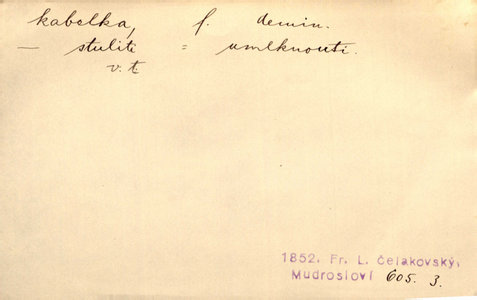 kabelka, f. demin.
— stuliti = umlknouti.
v. t.
1852. Fr. L. Čelakovský,
Mudrosloví 605. 3.